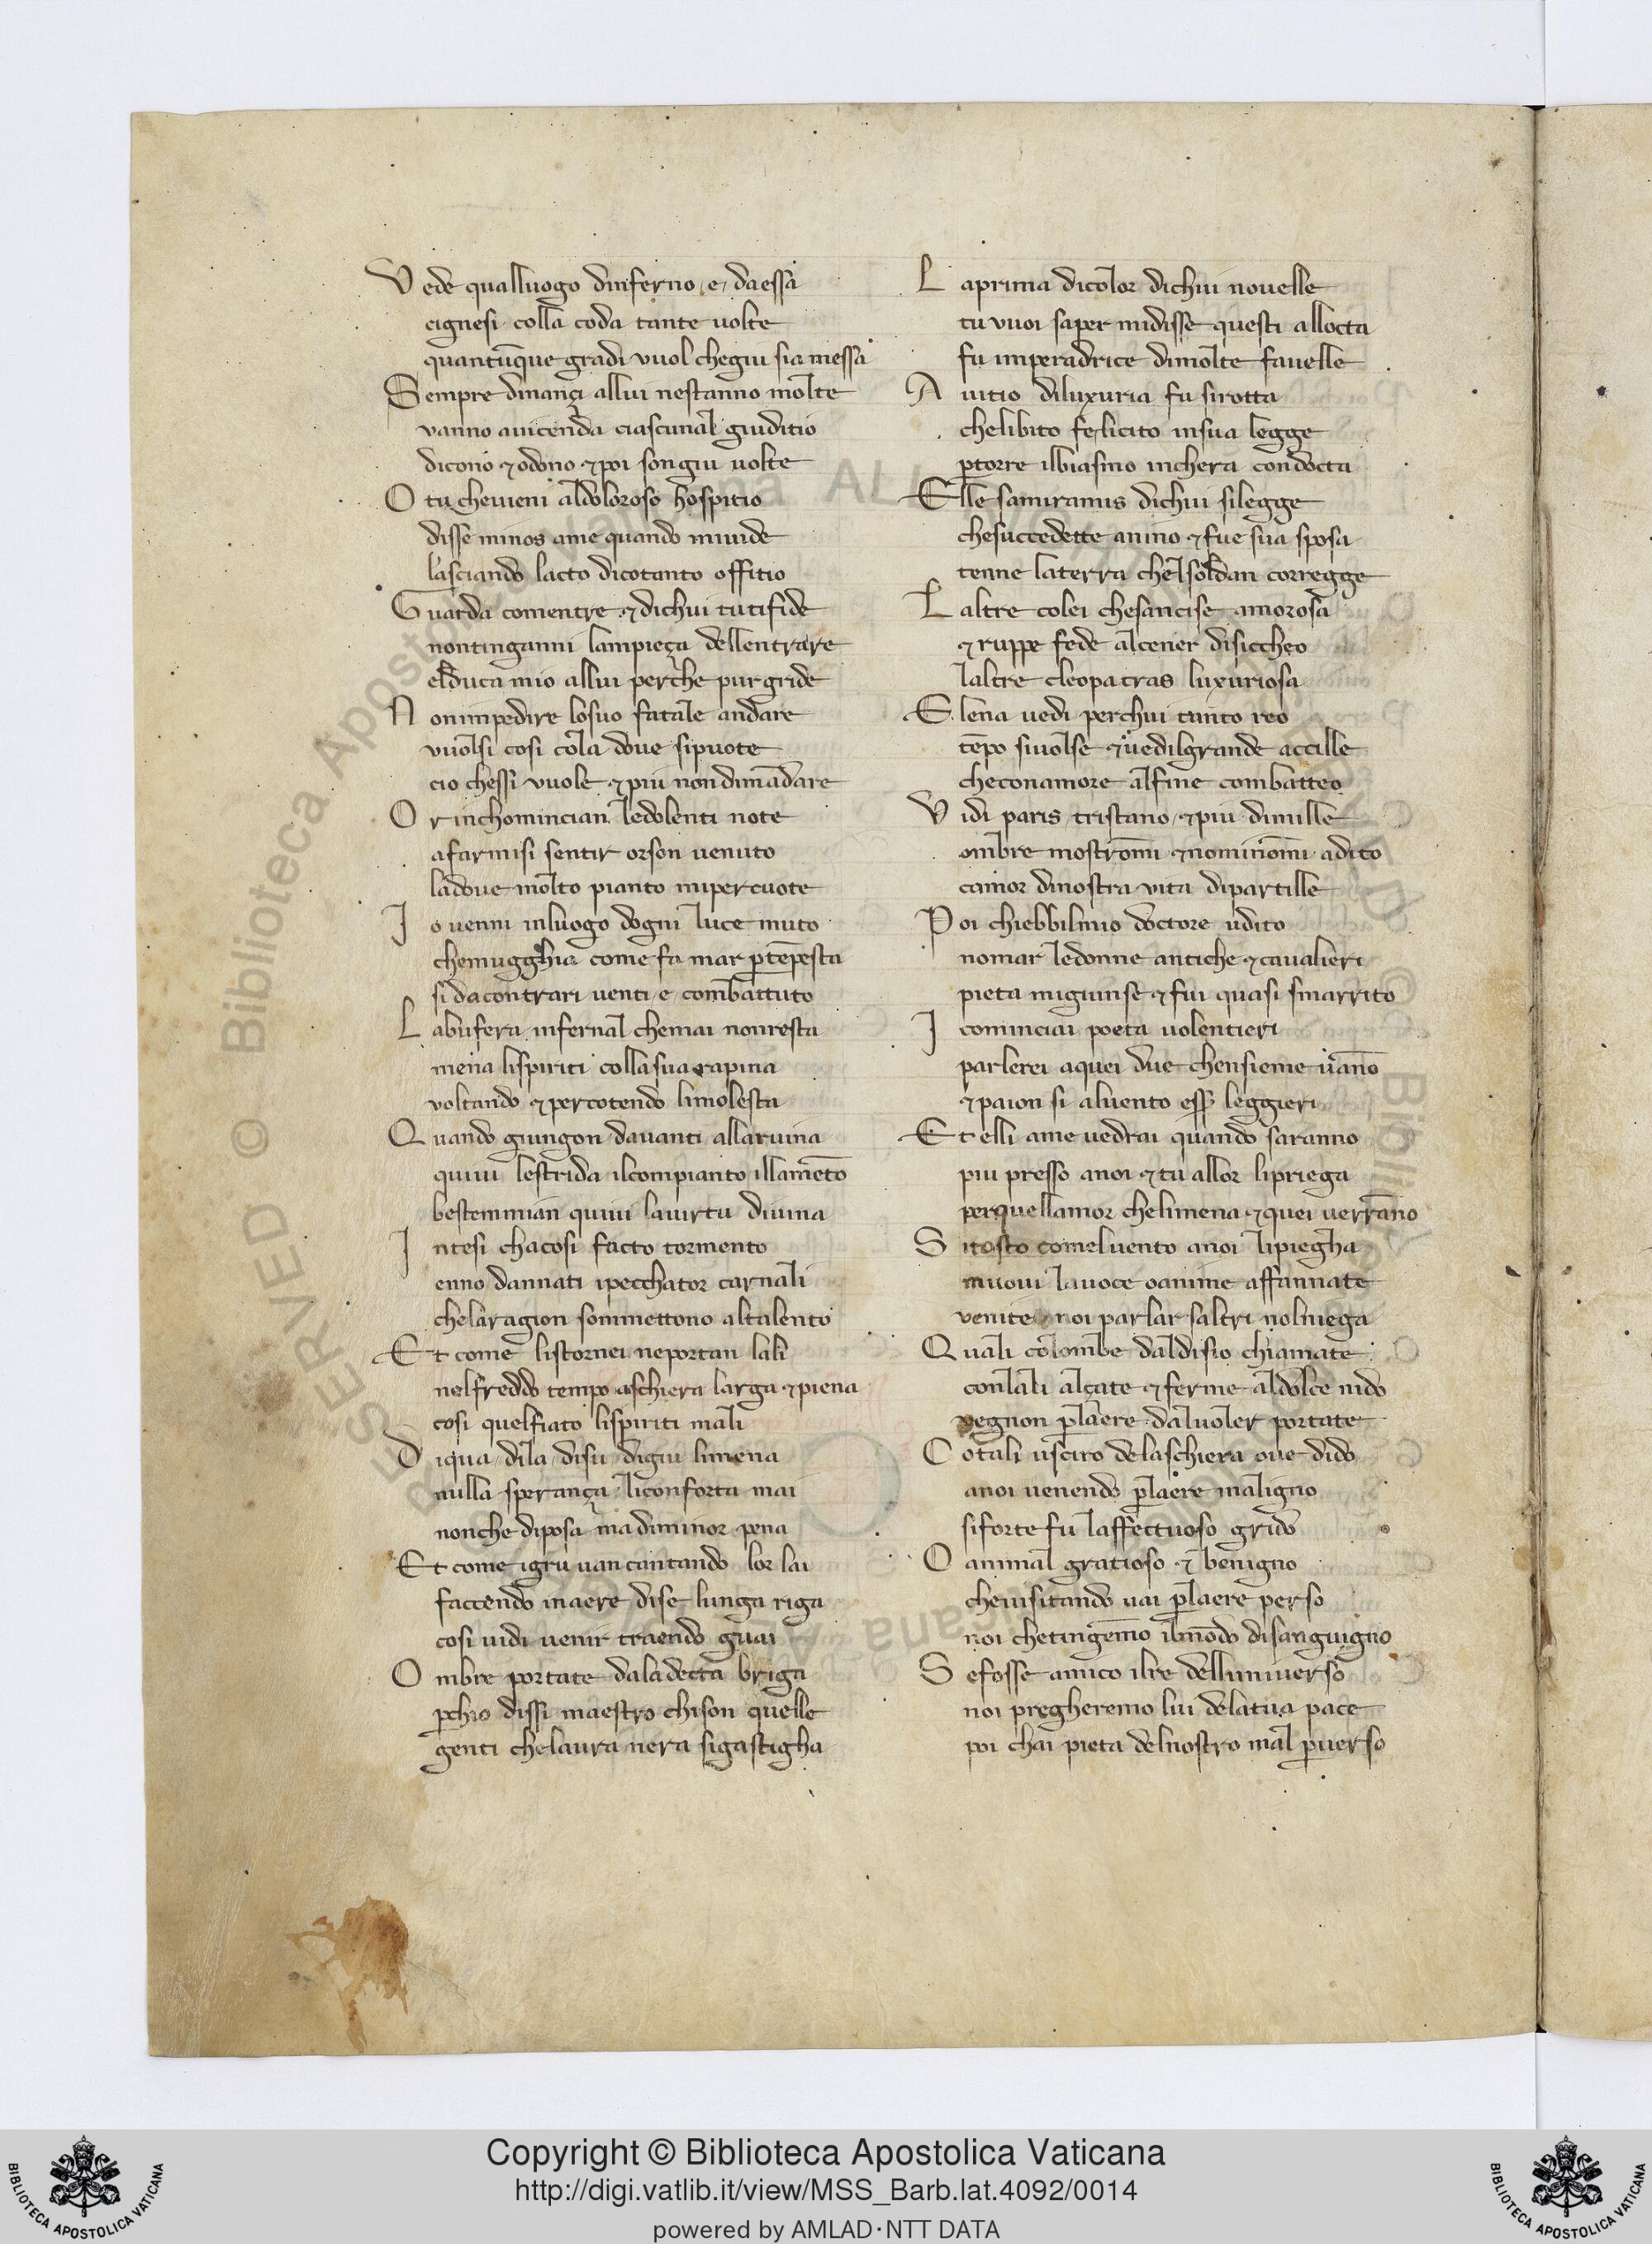 Vede qualluogo dinferno .e. daessa
cignesi colla coda tante uolte
quantūque gradi vuol chegiu sia messa
Sempre dinançi allui nestanno molte
vanno auicenda ciascunal giuditio
dicono ⁊ odono ⁊ poi songiu uolte
O tu cheuieni aldoloroso hospitio
disse minos ame quando miuide
lasciando lacto dicotanto offitio
Guarda comentre ⁊ dichui tutifide
nontinganni lampieça dellentrare
elduca mio allui perche pur gride
Nonimpedire losuo fatale andare
vuolsi cosi cola doue sipuote
cio chessi vuole ⁊ piu non dimādare
Or inchomincian ledolenti note
afarmisi sentir orson uenuto
ladoue molto pianto mipercuote
Io uenni inluogo dogni luce muto
chemugghia come fa mar ꝑtēpesta
si dacontrari uenti .e. combattuto
Labufera infernal chemai nonresta
mena lispiriti collasua rapina
voltando ⁊ percotendo limolesta
Quando giungon dauanti allaruina
quiui lestrida ilcompianto illamēto
bestemmian quiui lauirtu diuina
Intesi chacosi facto tormento
enno dannati ipecchator carnali
chelaragion sommettono altalento
Et come listornei neportan lali
nelfreddo tempo aschiera larga ⁊ piena
cosi quelfiato lispiriti mali
Diqua dila disu digiu limena
nulla sperança liconforta mai
nonche diposa ma diminor pena
Et come igru uan cantando lor lai
faccendo inaere dise lunga riga
cosi uidi uenir traendo guai
Ombre portate dala decta briga
ꝑchio dissi maestro chison quelle
genti chelaura nera sigastigha
Laprima dicolor dichui nouelle
tu vuoi saper midisse questi allocta
fu imperadrice dimolte fauelle
A uitio diluxuria fu sirotta
chelibito fe licito insua legge
ꝑtorre ilbiasmo inchera condocta
Elle samiramis dichui silegge
chesuccedette anino ⁊ fue sua sposa
tenne laterra chelsoldan corregge
Laltre colei chesancise amorosa
⁊ ruppe fede alcener disiccheo
laltre cleopatras luxuriosa
Elena uedi perchui tanto reo
tēpo siuolse ⁊ uedilgrande accille
checonamore alfine combatteo
Vidi paris tristano ⁊ piu dimille
ombre mostrōmi ⁊ nominōmi adito
camor dinostra vita dipartille
Poi chiebbilmio doctore udito
nomar ledonne antiche ⁊ cavalieri
pieta migiunse ⁊ fui quasi smarrito
I cominciai poeta uolentieri
parlerei aquei due chensieme uāno
⁊ paion si aluento esser leggieri
Et elli ame uedrai quando saranno
piu presso anoi ⁊ tu allor lipriega
perquellamor chelimena ⁊ quei uerrāno
Sitosto comeluento anoi lipiegha
muoui lauoce oanime affannate
venite noi parlar saltri nolniega
Quali colombe daldisio chiamate
conlali alçate ⁊ ferme aldolce nido
vegnon ꝑlaere daluoler portate
Cotali usciro delaschiera oue dido
anoi uenendo ꝑlaere maligno
siforte fu laffectuoso grido
O animal gratioso ⁊ benigno
cheuisitando uai ꝑlaere perso
noi chetingēmo ilmōdo disanguigno
Sefosse amico ilre delluniuerso
noi pregheremo lui delatua pace
poi chai pieta delnostro mal ꝑuerso
Copyright © Biblioteca Apostolica Vaticana
http://digi.vatlib.it/view/MSS_Barb.lat.4092/0014
powered by AMLAD·NTT DATA
BIBLIOTECA APOSTOLICA VATICANA
BIBLIOTECA APOSTOLICA VATICANA